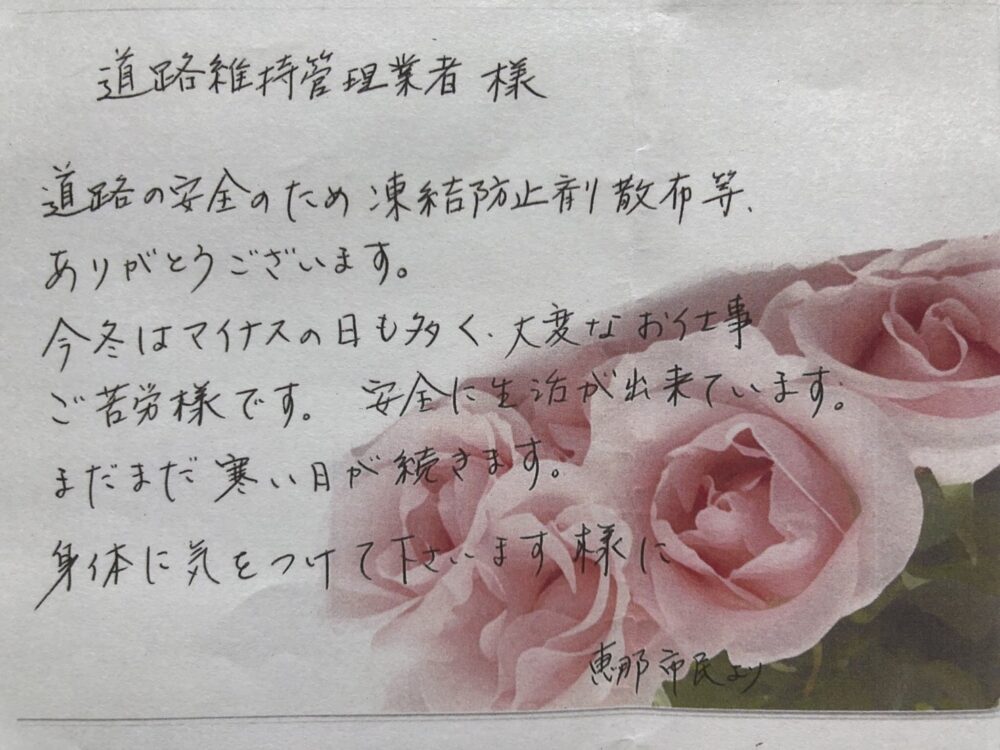 道路維持管理業者 様
道路の安全のため 凍結防止剤散布等、
ありがとうございます。
今冬はマイナスの日も多く、大変なお仕事
ご苦労様です。 安全に生活が出来ています。
まだまだ寒い日が続きます。
身体に気をつけて下さいます様に
恵那市民より